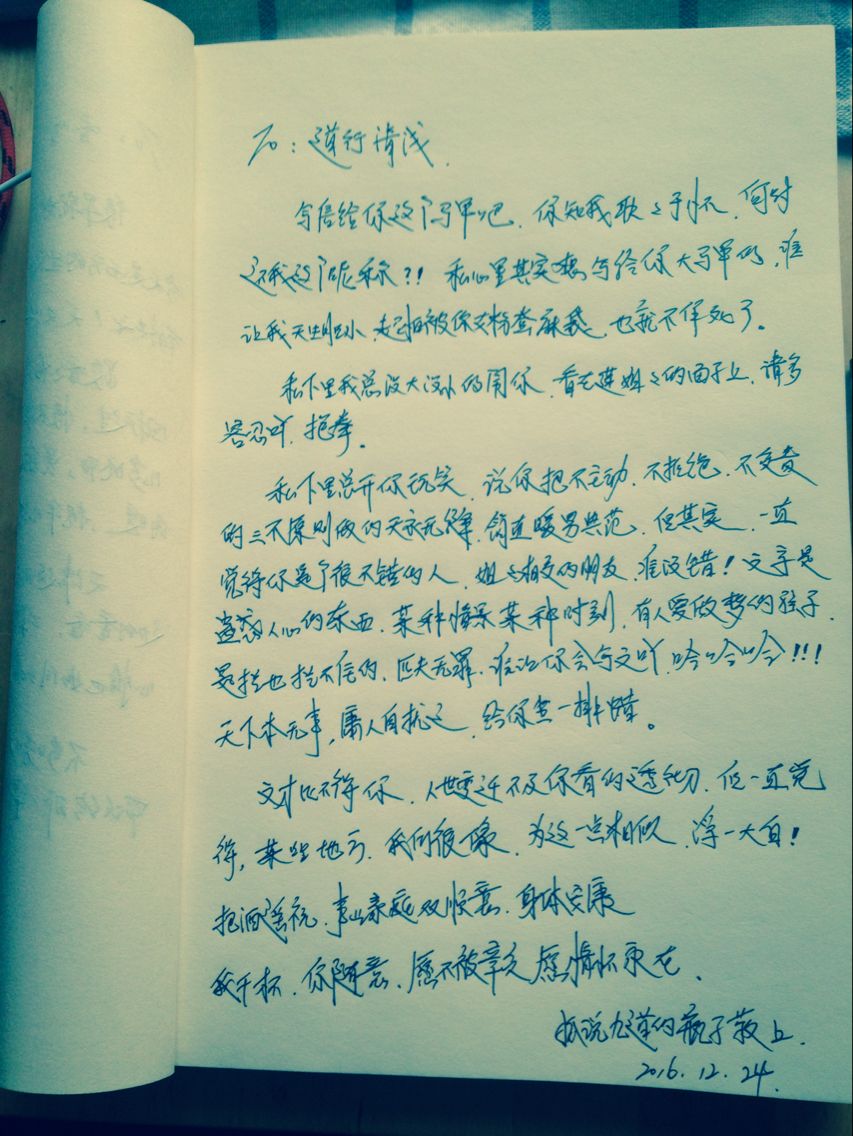 To：道行清浅.
写信给你这个马甲吧，你知我耿耿于怀，何时
这我这个昵称?! 私心里其实想写给你大马甲的，谁
让我天生胆小，起怕被你支粉套麻袋，也就不作死了。
私下里我总没大没小的闹你，看在莲姐姐的面子上，请多
容忍吖，抱拳。
私下里总开你玩笑，说你把不主动，不拒绝，不负责
的三不原则做的天衣无缝，简直暖男典范，但其实，一直
觉得你是个很不错的人，姐姐相交的朋友，准没错！文字是
蛊惑人心的东西，某种情景某种时刻，有人爱做梦的孩子，
是拦也拦不住的，匹夫无罪，谁让你会写文吖，哈哈哈!!!
天下本无事，庸人自扰之，给你点一排蜡。
文才比不得你，人世变迁不及你看的透彻，但一直觉
得，某些地方，我们很像，为这一点相似，浮一大白！
把酒遥祝，事业家庭双顺意，身体安康
我干杯，你随意，愿不被辜负，愿情怀永在。
狐说九道的疯子敬上.
2016.12.24.